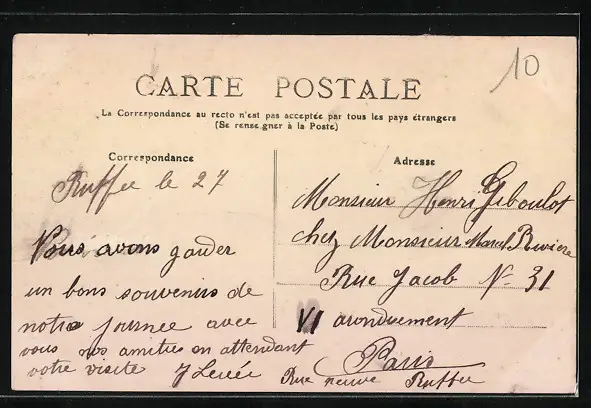 10
CARTE POSTALE
La Correspondance au recto n'est pas acceptée par tous les pays étrangers
(Se renseigner à la Poste)
Correspondance
Ruffec le 27
Vous avons garder
un bons souvenirs de
notre journee avec
vous nos amities en attendant
votre visite
Adresse
Monsieur Henri Giboulot
chez Monsieur Marcel Riviere
Rue Jacob N. 31
VI arondissement
Paris
Rue neuve Ruffec